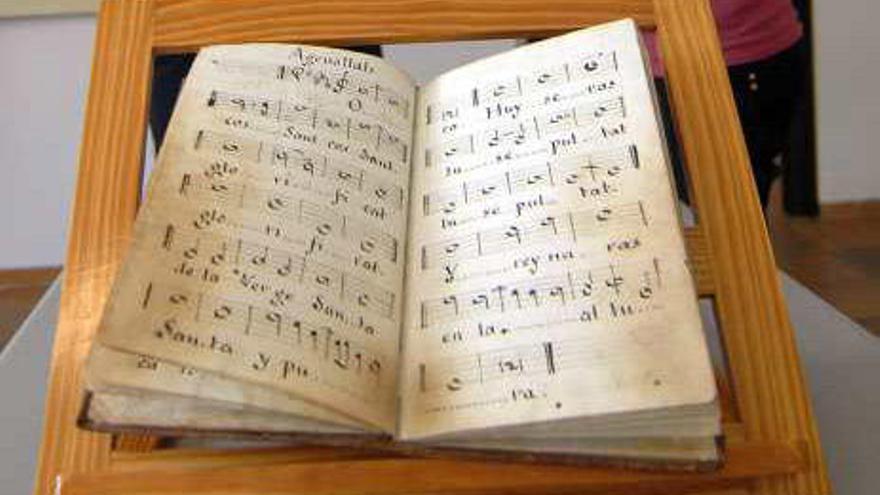 Agenollats
O
cos.... Sant cos Sant.
glo.........ri.....fi cat
glo.........ri.....fi......cat.
de la Ver ge San...ta
San..ta y pu.
za
ra. Huy se.....ras
tu.....se.....pul tat
tu....se pul....tat.
y.......rey na...ras
en la...........al tu...
............ra.